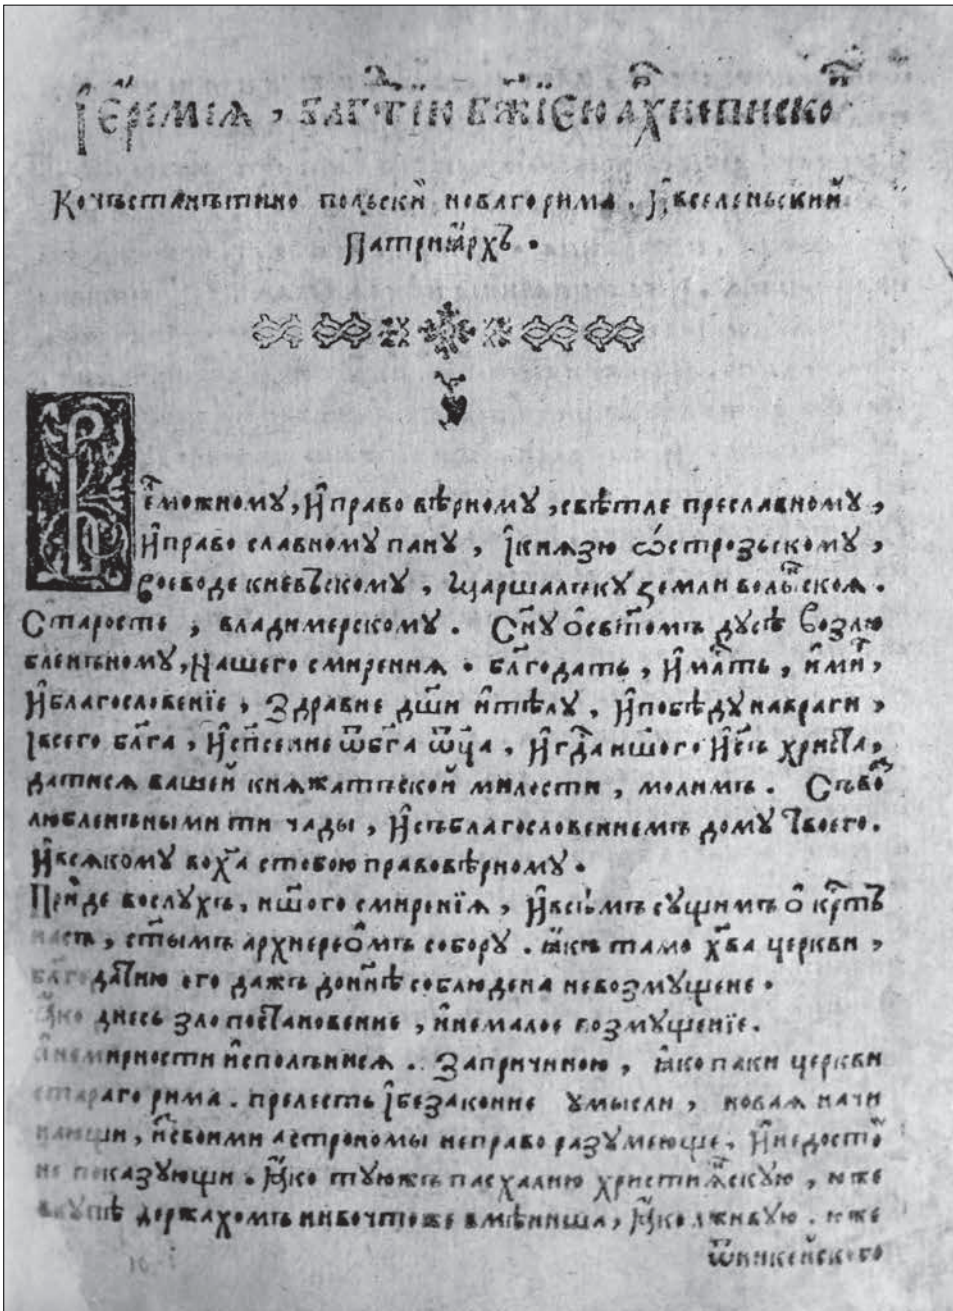 І҆ЕРЕМІѦ, БЛГⷭ҇ТЇЮ БЖ҃ІЄЮ а҆рⷯхиепискоⷫ
Конъстанътино польскиⷤ новаго рима. И҆вселеньский
Патриꙗрхъ.
Велможному, И҆право вѣрному, свѣтле преславному,
И҆право славному пану, І҆кнѧзю ѡ҆строзьскому,
Воеводе киевъскому, Маршалъку земли волыⷩскоѧ.
Старосте, владимерскому. Сн҃у ѻ҆свѣтомъ дусѣ Возлю
бленъному, Нашего смирениѧ. бл҃годать, И҆млⷭ҇ть, и҆миⷬ,
И҆благословенїе, Здравие дш҃и и҆тѣлу, И҆победу навраги,
І҆всего бл҃га, И҆сп҃сение ѿбг҃а ѿц҃а, И҆гдⷭ҇а ншего И҆сⷭ҇ъ христⷭ҇а,
датисѧ вашей кнѧжатъской милости, молимъ. Съвоⷥ
любленъными ти чады, И҆съблагословениемъ дому Твоего.
И҆всѧкому вохⷭ҇а стобою правовѣрному.
Прїиде вослухъ, ншого смиренїѧ, И҆всѣмъ сущимъ ѻ҆ крⷭ҇тъ
насъ, ст҃ымъ архиереѻмъ собору. ꙗкъ тамо хⷭ҇ва церкви,
бл҃годатїю его дажъ донн҃ѣ соблюдена невозмущене.
Ꙗко днесь зло поставновение, и҆немалое возмущенїе.
И҆немирности и҆сполънисѧ. Запричиною, ꙗко паки церкви
стараго рима. прелесть І҆безаконие умысли, новаѧ начи
наюши, и҆своими астрономы неправо разумеюще, И҆недостоⷤ
не показующи. Ꙗко туюжъ пасхалию христиꙗⷩскую, юже
вкупѣ держахомъ нивочтоже вмѣниша, Ꙗко лживую. юже
ѿникейского